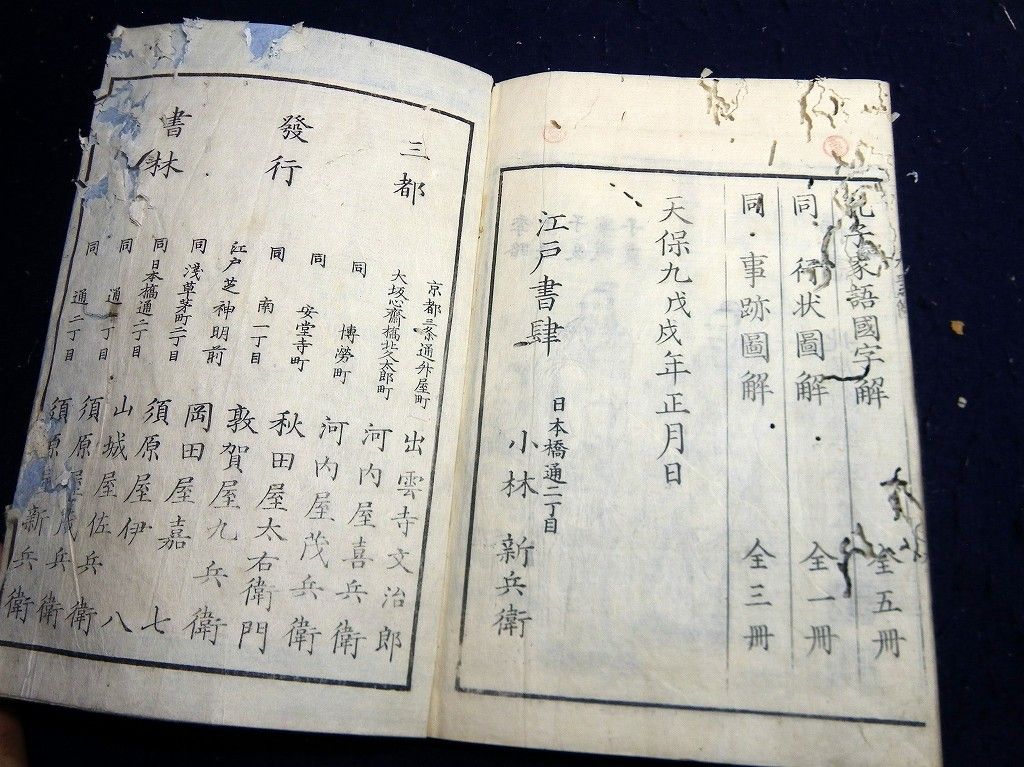 孔子家語國字解 全五冊
同 行状圖解 全一冊
同 事跡圖解 全三冊
天保九戊戌年正月日
江戸書肆 日本橋通二丁目 小林新兵衛
三都
發行
書林
京都三条通升屋町 出雲寺文治郎
大坂心齋橋北久太郎町 河内屋喜兵衛
同 博勞町 河内屋茂兵衛
同 安堂寺町 秋田屋太右衛門
同 南一丁目 敦賀屋九兵衛
江戸芝神明前 岡田屋嘉七
同 淺草茅町二丁目 須原屋伊八
同 日本橋通二丁目 山城屋佐兵衛
同 通一丁目 須原屋茂兵衛
同 通二丁目 須原屋新兵衛